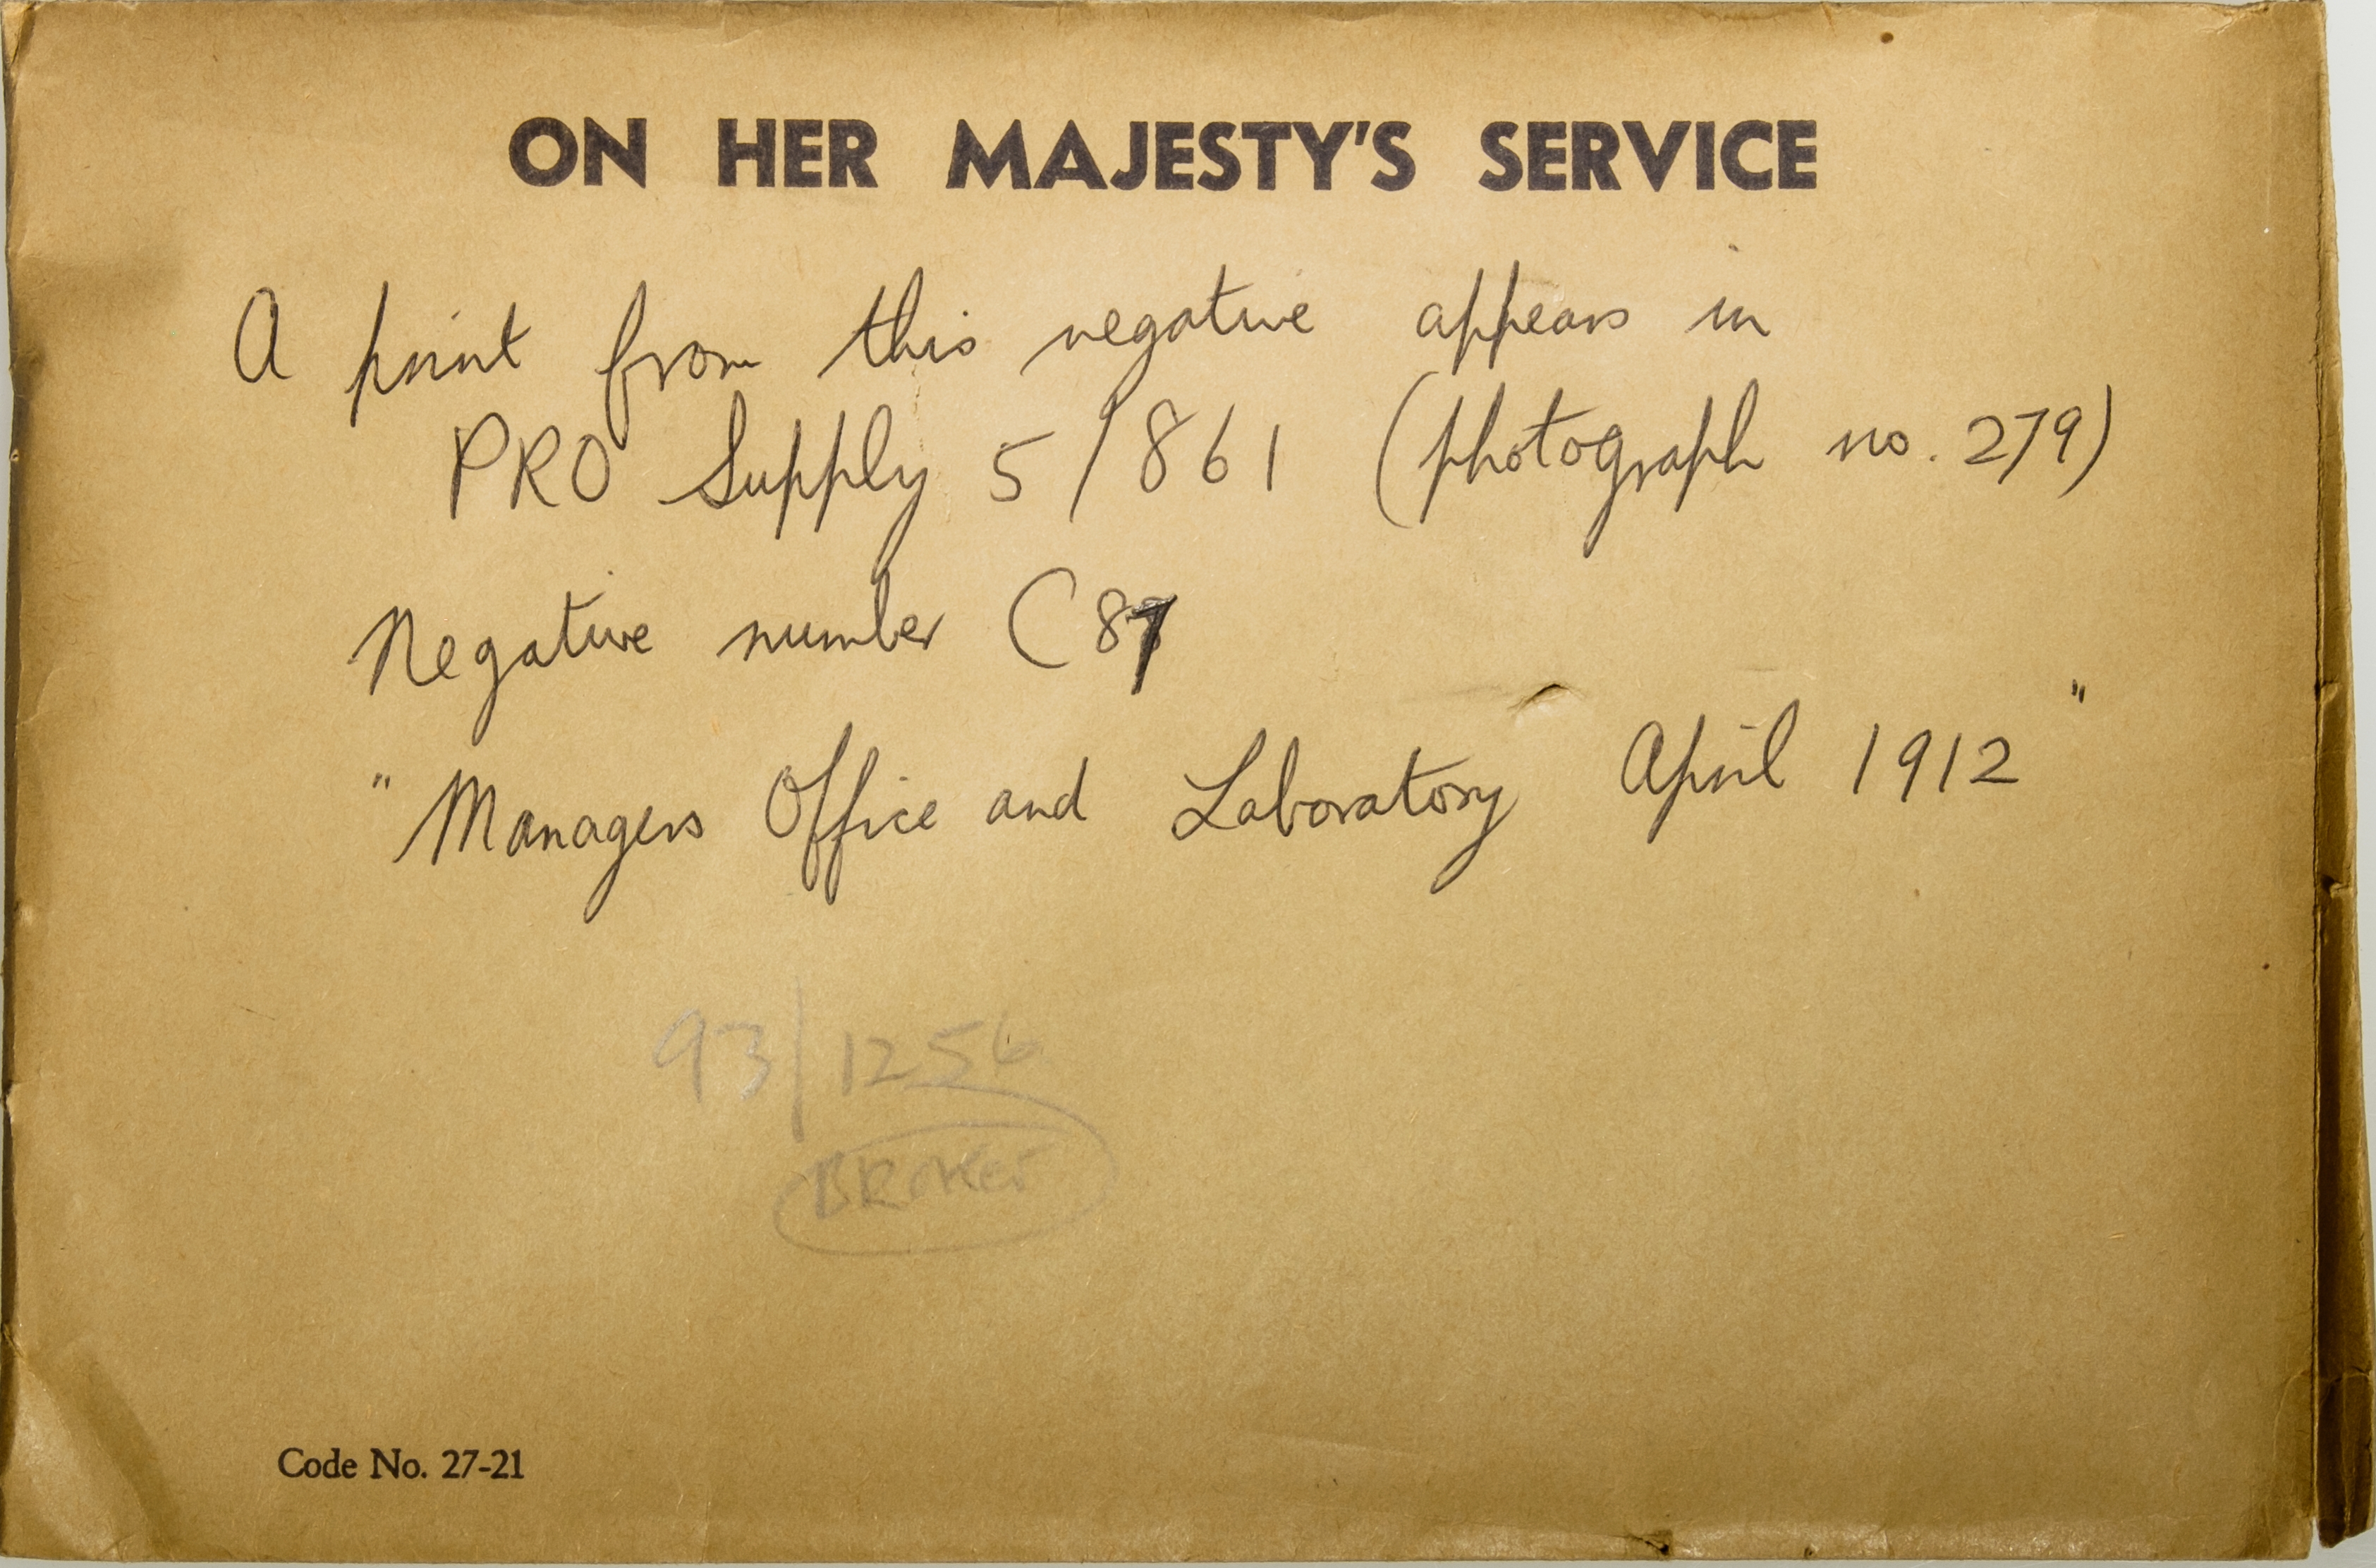 ON HER MAJESTY'S SERVICE
A print from this negative appears in
PRO Supply 5/861 (photograph no. 279)
Negative number C87
"Managers Office and Laboratory April 1912"
93/1256
BROKEN
Code No. 27-21